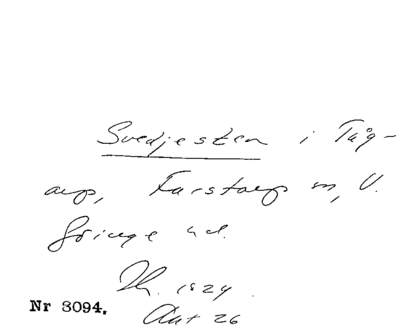 Svedjesten i Tåg-
arp, Farstorps sn, V.
Göinge hd.
Th. 1824.
Ant 26
Nr 3094.